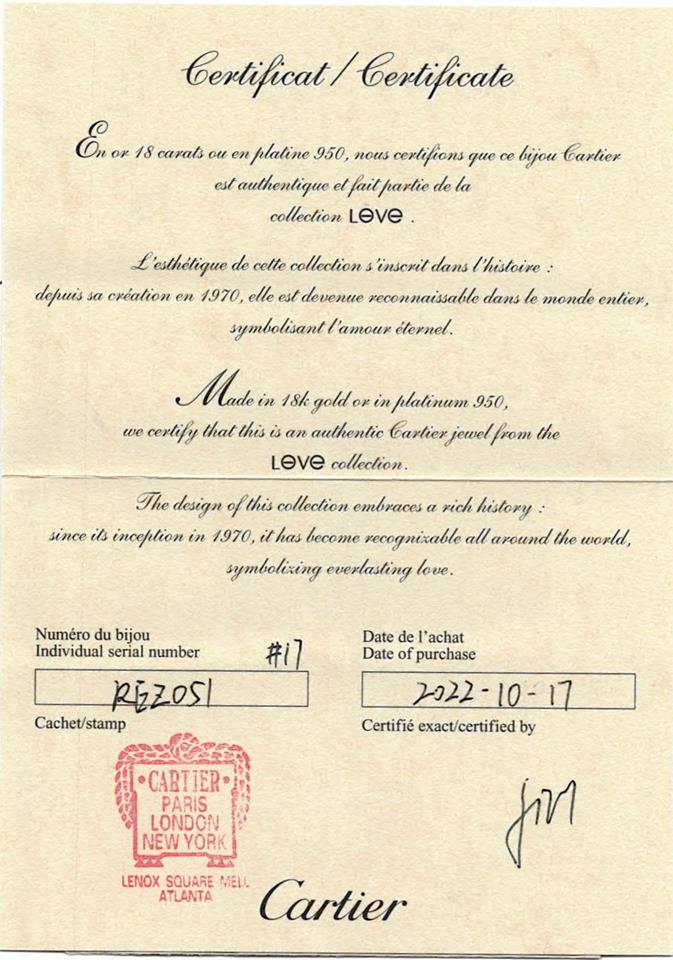 Certificat / Certificate
En or 18 carats ou en platine 950, nous certifions que ce bijou Cartier
est authentique et fait partie de la
collection LOVE .
L'esthétique de cette collection s'inscrit dans l'histoire :
depuis sa création en 1970, elle est devenue reconnaissable dans le monde entier,
symbolisant l'amour éternel.
Made in 18k gold or in platinum 950,
we certify that this is an authentic Cartier jewel from the
LOVE collection.
The design of this collection embraces a rich history :
since its inception in 1970, it has become recognizable all around the world,
symbolizing everlasting love.
Numéro du bijou
Individual serial number #17
Date de l'achat
Date of purchase
2022-10-17
Cachet/stamp
Certifié exact/certified by
CARTIER
PARIS
LONDON
NEW YORK
LENOX SQUARE
ATLANTA
Cartier